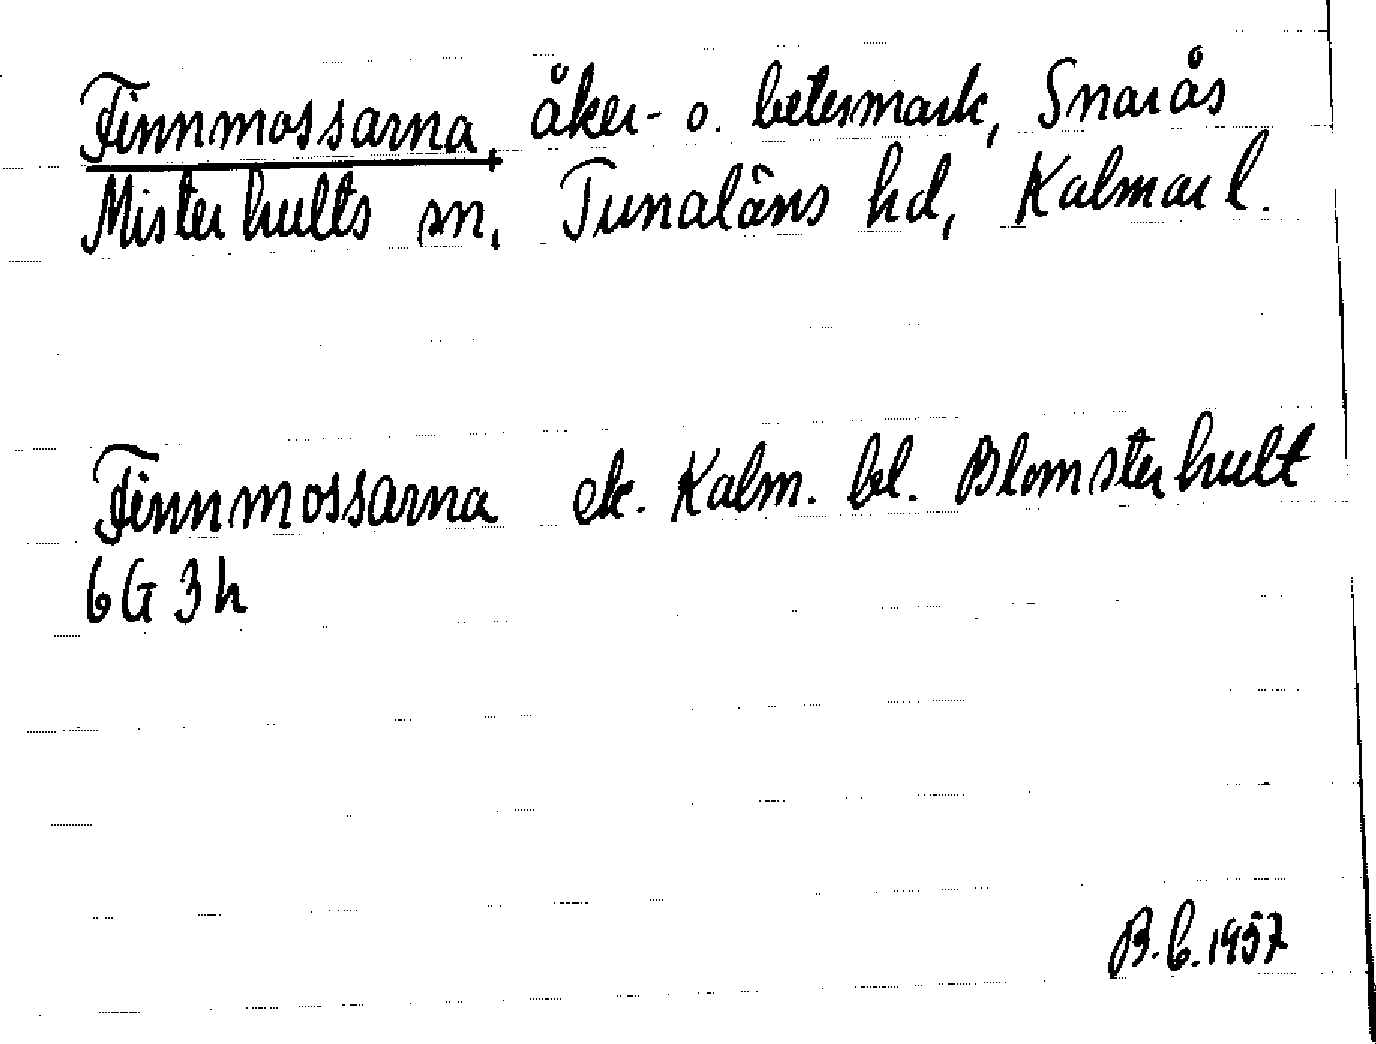 Finnmossarna, åker- o. betesmark, Snarås
Misterhults sn, Tunaläns hd, Kalmar l.
Finnmossarna ek. Kalm. bl. Blomsterhult
6G 3h
B.L. 1957